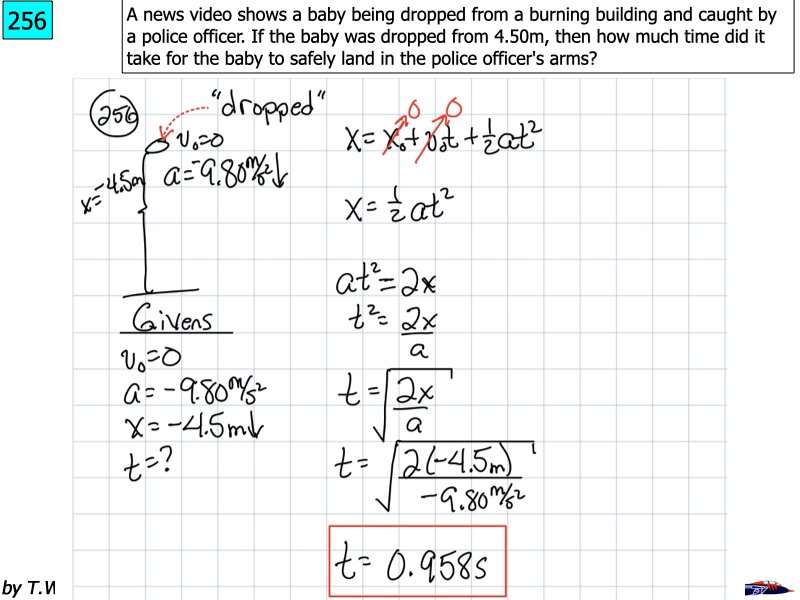 256
A news video shows a baby being dropped from a burning building and caught by
a police officer. If the baby was dropped from 4.50m, then how much time did it
take for the baby to safely land in the police officer's arms?
256
"dropped"
v₀=0
a=-9.80m/s²↓
x=-4.5m
Givens
v₀=0
a=-9.80m/s²
x=-4.5m↓
t=?
0 0
x=x₀+v₀t+½at²
x=½at²
at²=2x
t²=2x/a
t=√(2x/a)
t=√(2(-4.5m)/-9.80m/s²)
t=0.958s
by T.W